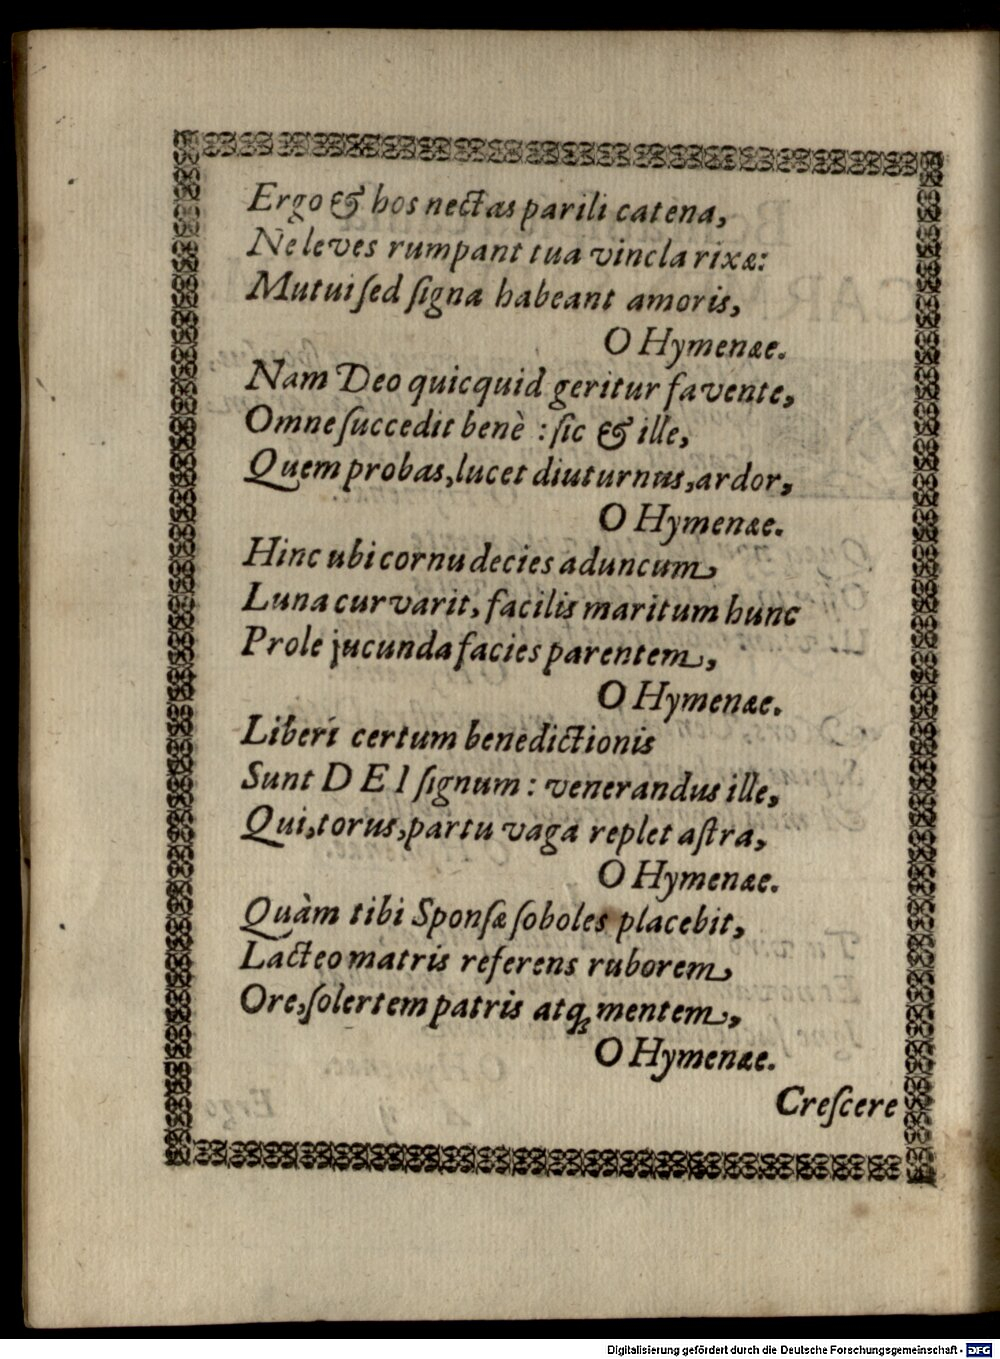 Ergo & hos nectas parili catena,
Ne leves rumpant tua vincla rixæ:
Mutui ſed ſigna habeant amoris,
O Hymenæe.
Nam Deo quicquid geritur favente,
Omne ſuccedit benè : ſic & ille,
Quem probas, lucet diuturnus, ardor,
O Hymenæe.
Hinc ubi cornu decies aduncum
Luna curvarit, facilis maritum hunc
Prole jucunda facies parentem,
O Hymenæe.
Liberi certum benedictionis
Sunt DEI ſignum : venerandus ille,
Qui, torus, partu vaga replet aſtra,
O Hymenæe.
Quàm tibi Sponſæ ſoboles placebit,
Lacteo matris referens ruborem
Ore, ſolertem patris atq; mentem,
O Hymenæe.
Creſcere
Digitalisierung gefördert durch die Deutsche Forschungsgemeinschaft - DFG